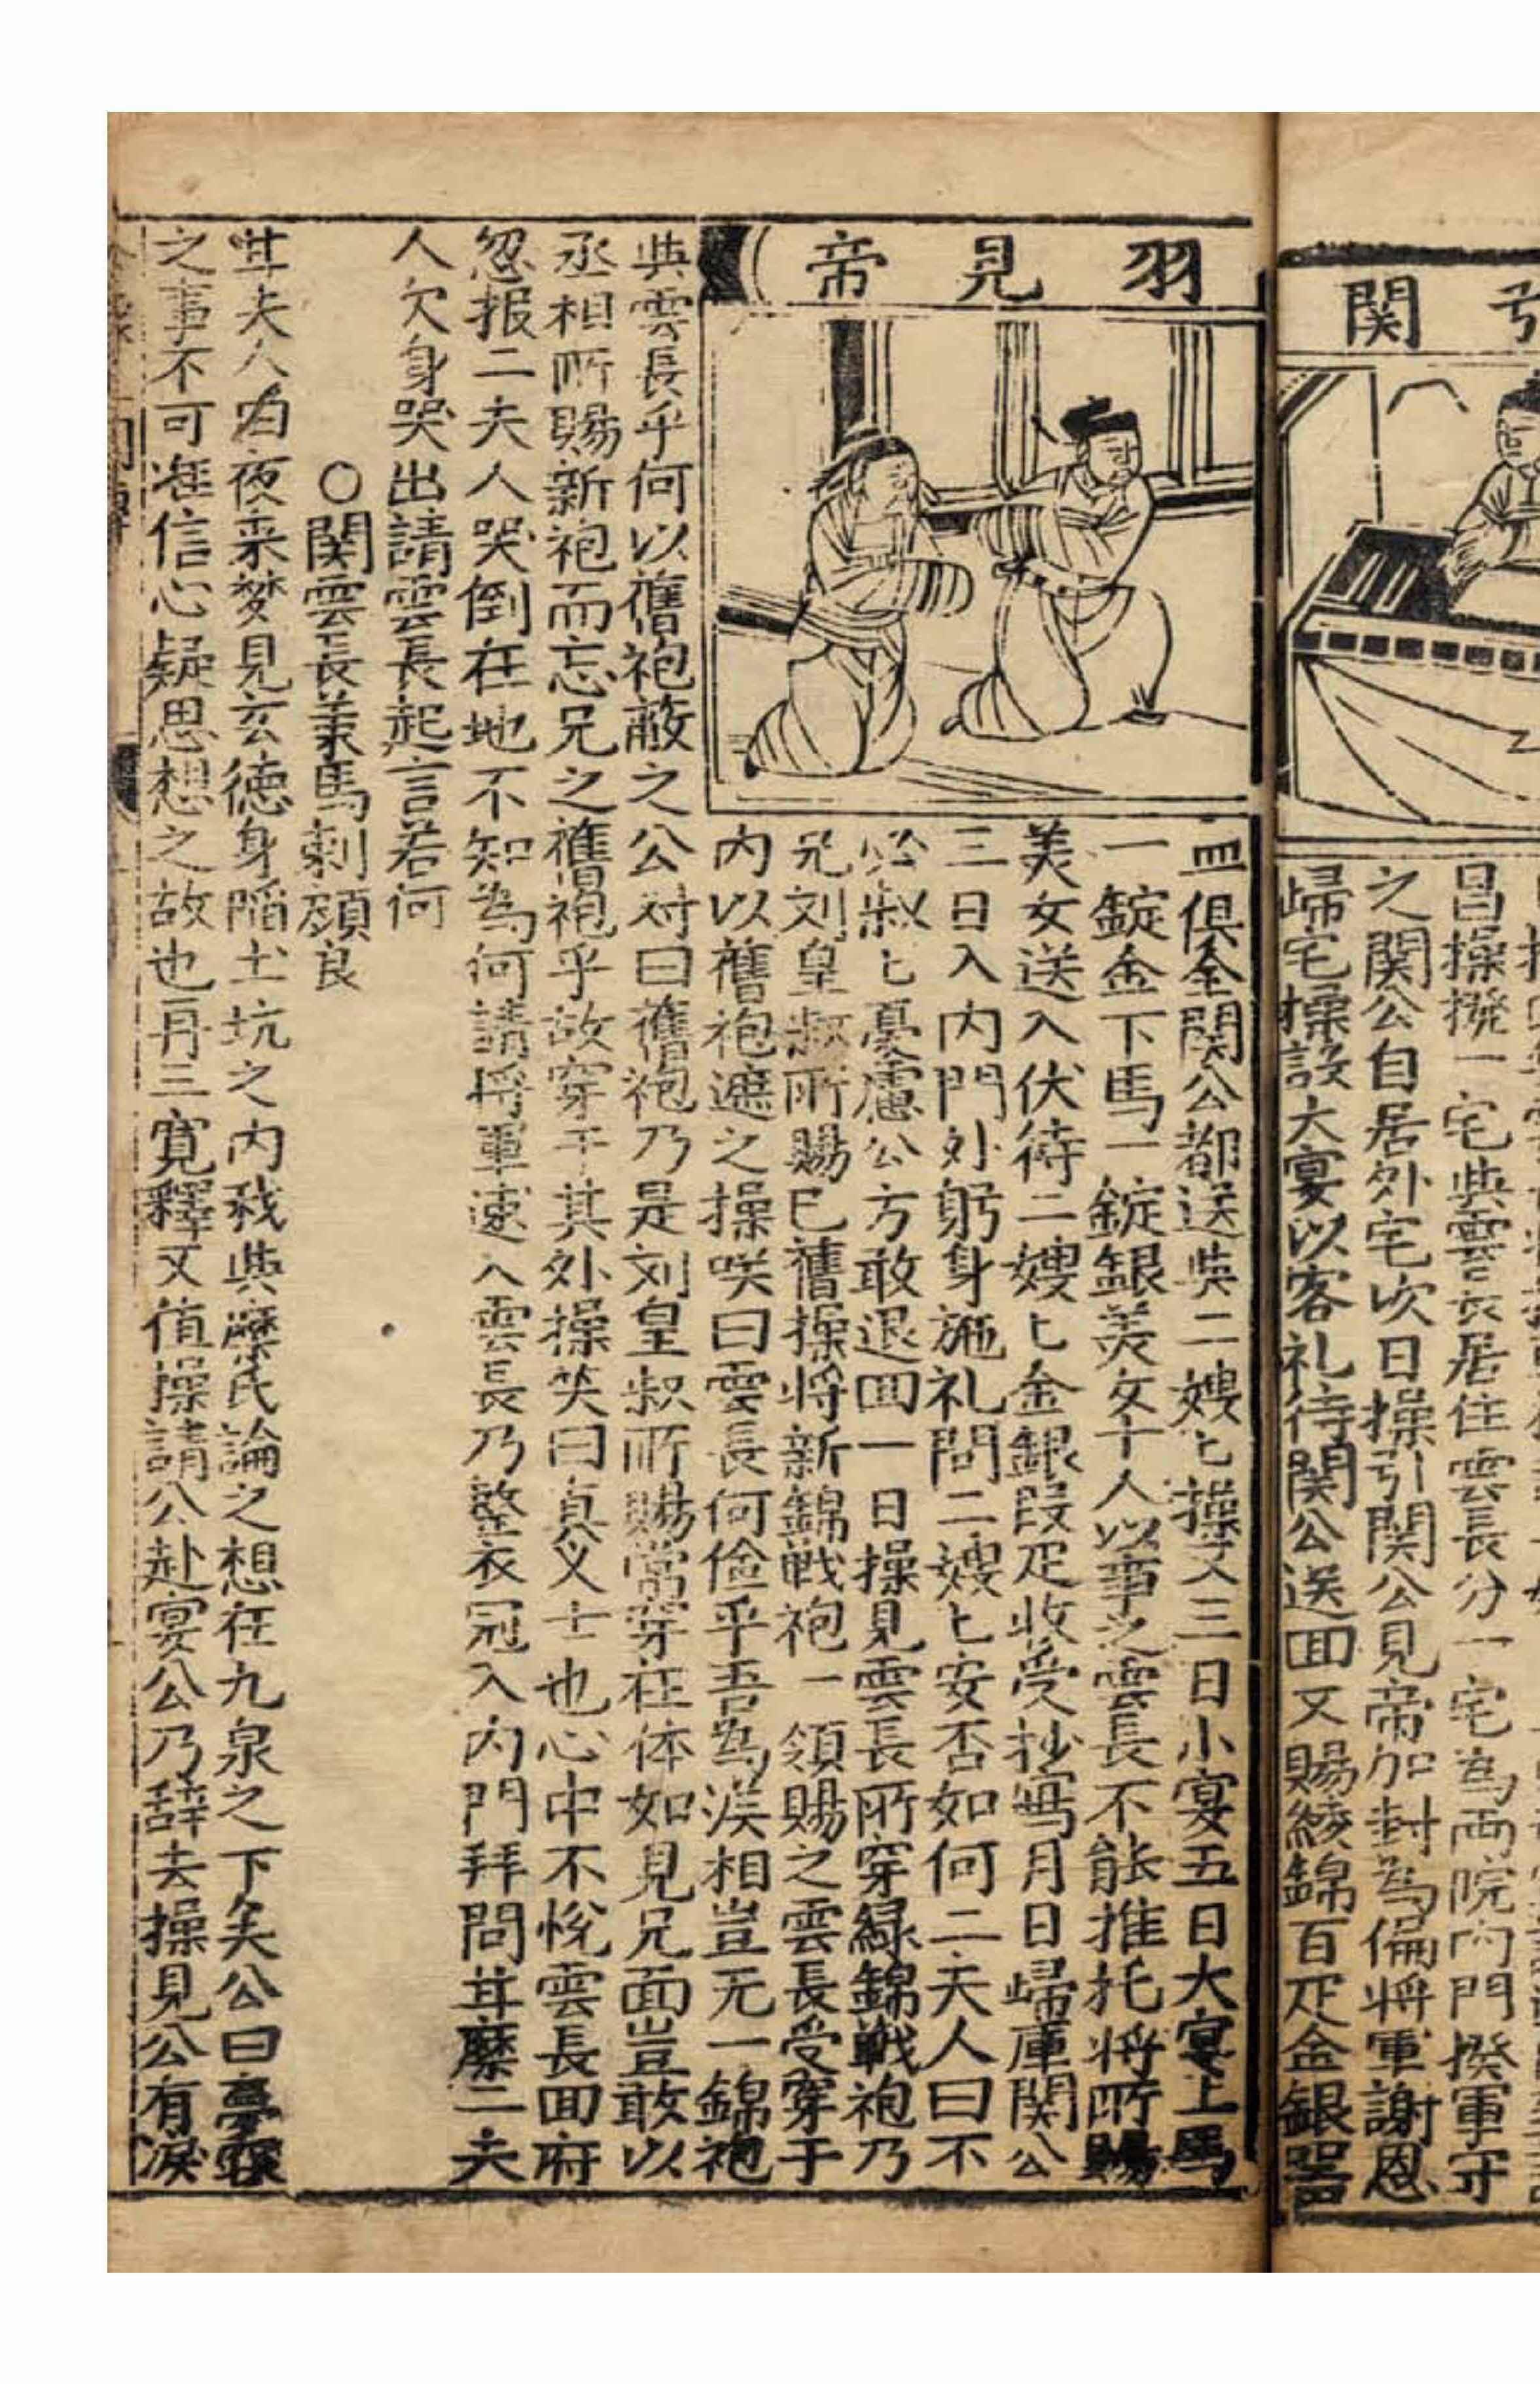 引関
昌操撥一宅與雲長居住雲長分一宅為両院内門撥軍守
之関公自居外宅次日操引関公見帝加封為偏将軍謝恩
歸宅操設大宴以客礼待関公送囬又賜綾錦百疋金銀器
羽見帝
皿俱全関公都送與二嫂匕操又三日小宴五日大宴上馬
一錠金下馬一錠銀美女十人以事之雲長不能推托将所賜
美女送入伏待二嫂匕金銀段疋收受抄寫月日歸庫関公
三日入内門外躬身施礼問二嫂匕安否如何二夫人曰不
必叔匕憂慮公方敢退囬一日操見雲長所穿緑錦戦袍乃
兄刘皇叔所賜巳舊操将新錦戦袍一領賜之雲長受穿于
内以舊袍遮之操咲曰雲長何儉乎吾為漢相豈无一錦袍
與雲長乎何以舊袍蔽之公对曰舊袍乃是刘皇叔所賜常穿在体如見兄面豈敢以
丞相所賜新袍而忘兄之舊袍乎故穿于其外操笑曰真义士也心中不悅雲長囬府
忽报二夫人哭倒在地不知為何請将軍速入雲長乃整衣冠入内門拜問甘糜二夫
人欠身哭出請雲長起言若何
○関雲長䇿馬刺顔良
甘夫人曰夜來梦見玄德身陷土坑之内我與縻氏論之想在九泉之下矣公曰夢寐
之事不可准信心疑思想之故也再三寛釋又值操請公赴宴公乃辞去操見公有淚